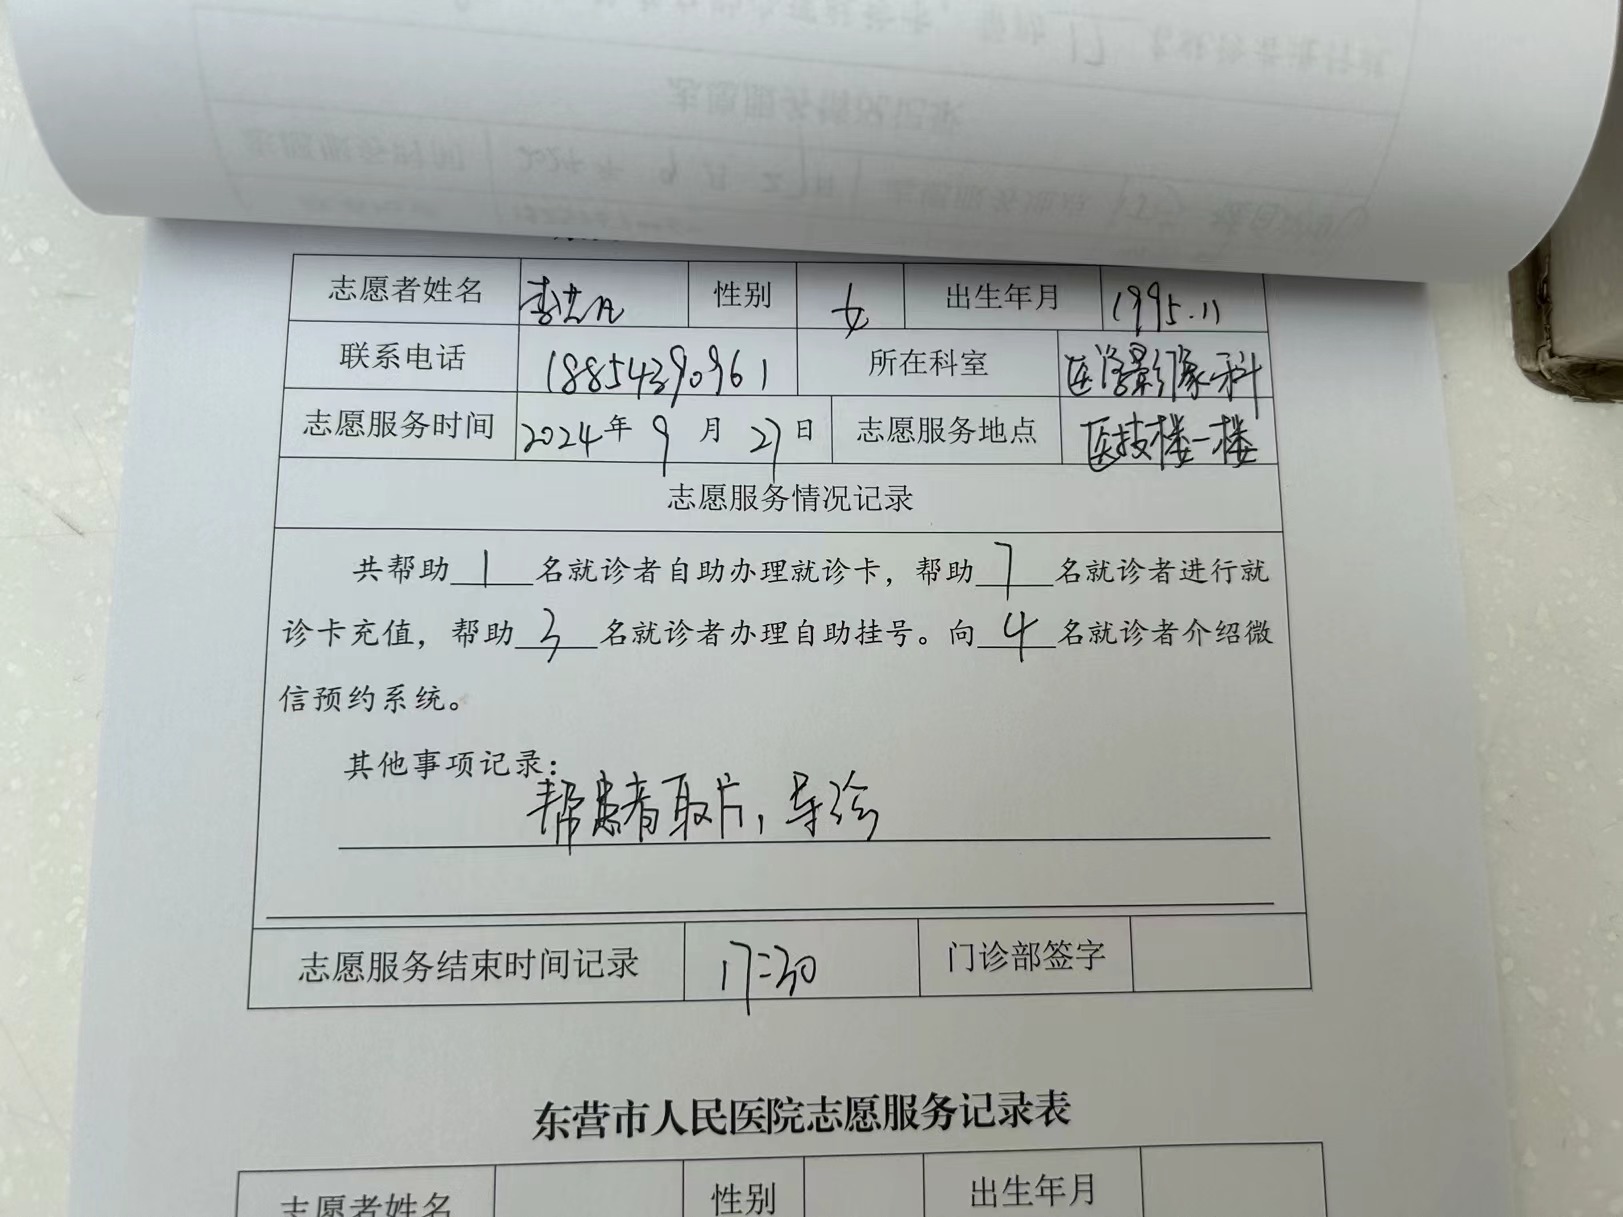 志愿者姓名 李艺凡 性别 女 出生年月 1995.11
联系电话 18854390961 所在科室 医学影像科
志愿服务时间 2024年 9 月 27日 志愿服务地点 医技楼一楼
志愿服务情况记录
共帮助 1 名就诊者自助办理就诊卡，帮助 7 名就诊者进行就
诊卡充值，帮助 3 名就诊者办理自助挂号。向 4 名就诊者介绍微
信预约系统。
其他事项记录：
帮患者取片，导诊
志愿服务结束时间记录 17:30 门诊部签字
东营市人民医院志愿服务记录表
志愿者姓名 性别 出生年月